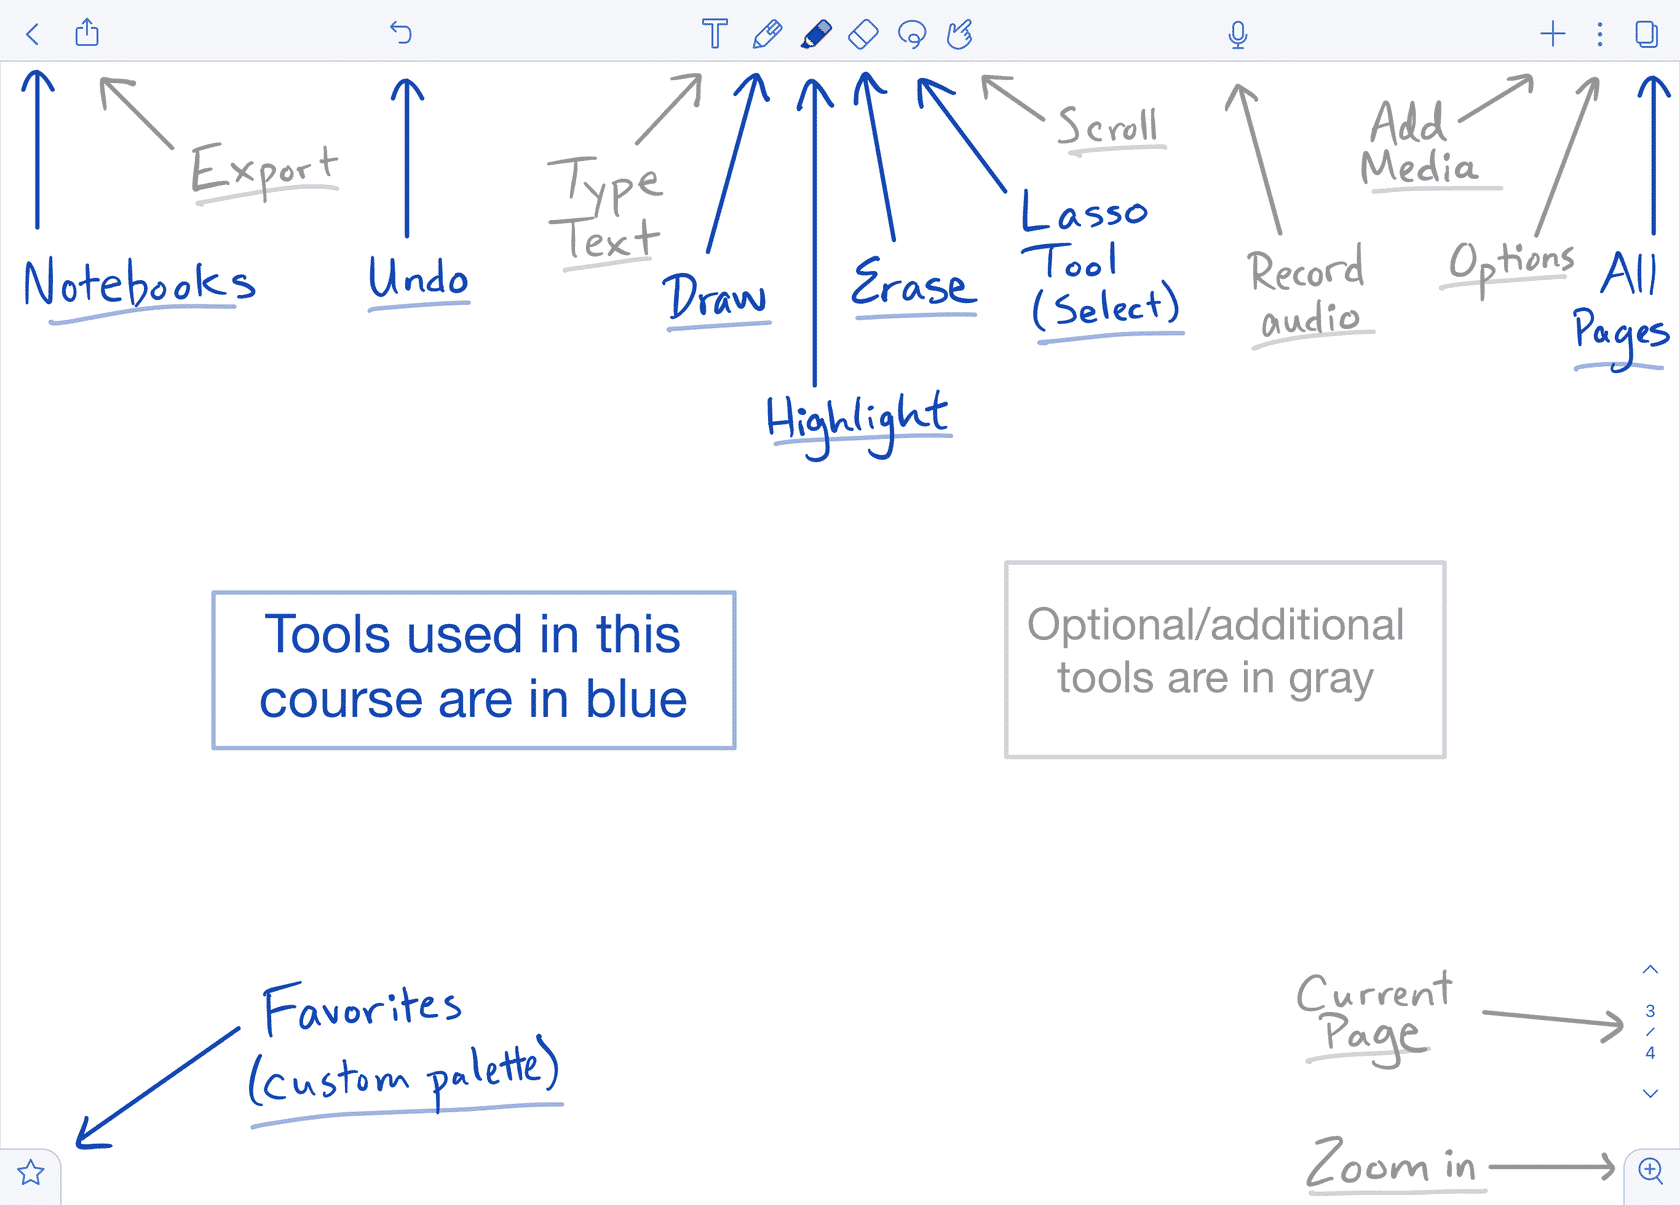 T
Export
Notebooks
Undo
Type
Text
Draw
Highlight
Erase
Scroll
Lasso
Tool
(Select)
Record
audio
Add
Media
Options
All
Pages
Tools used in this
course are in blue
Optional/additional
tools are in gray
Favorites
(custom palette)
Current
Page
3
/
4
Zoom in